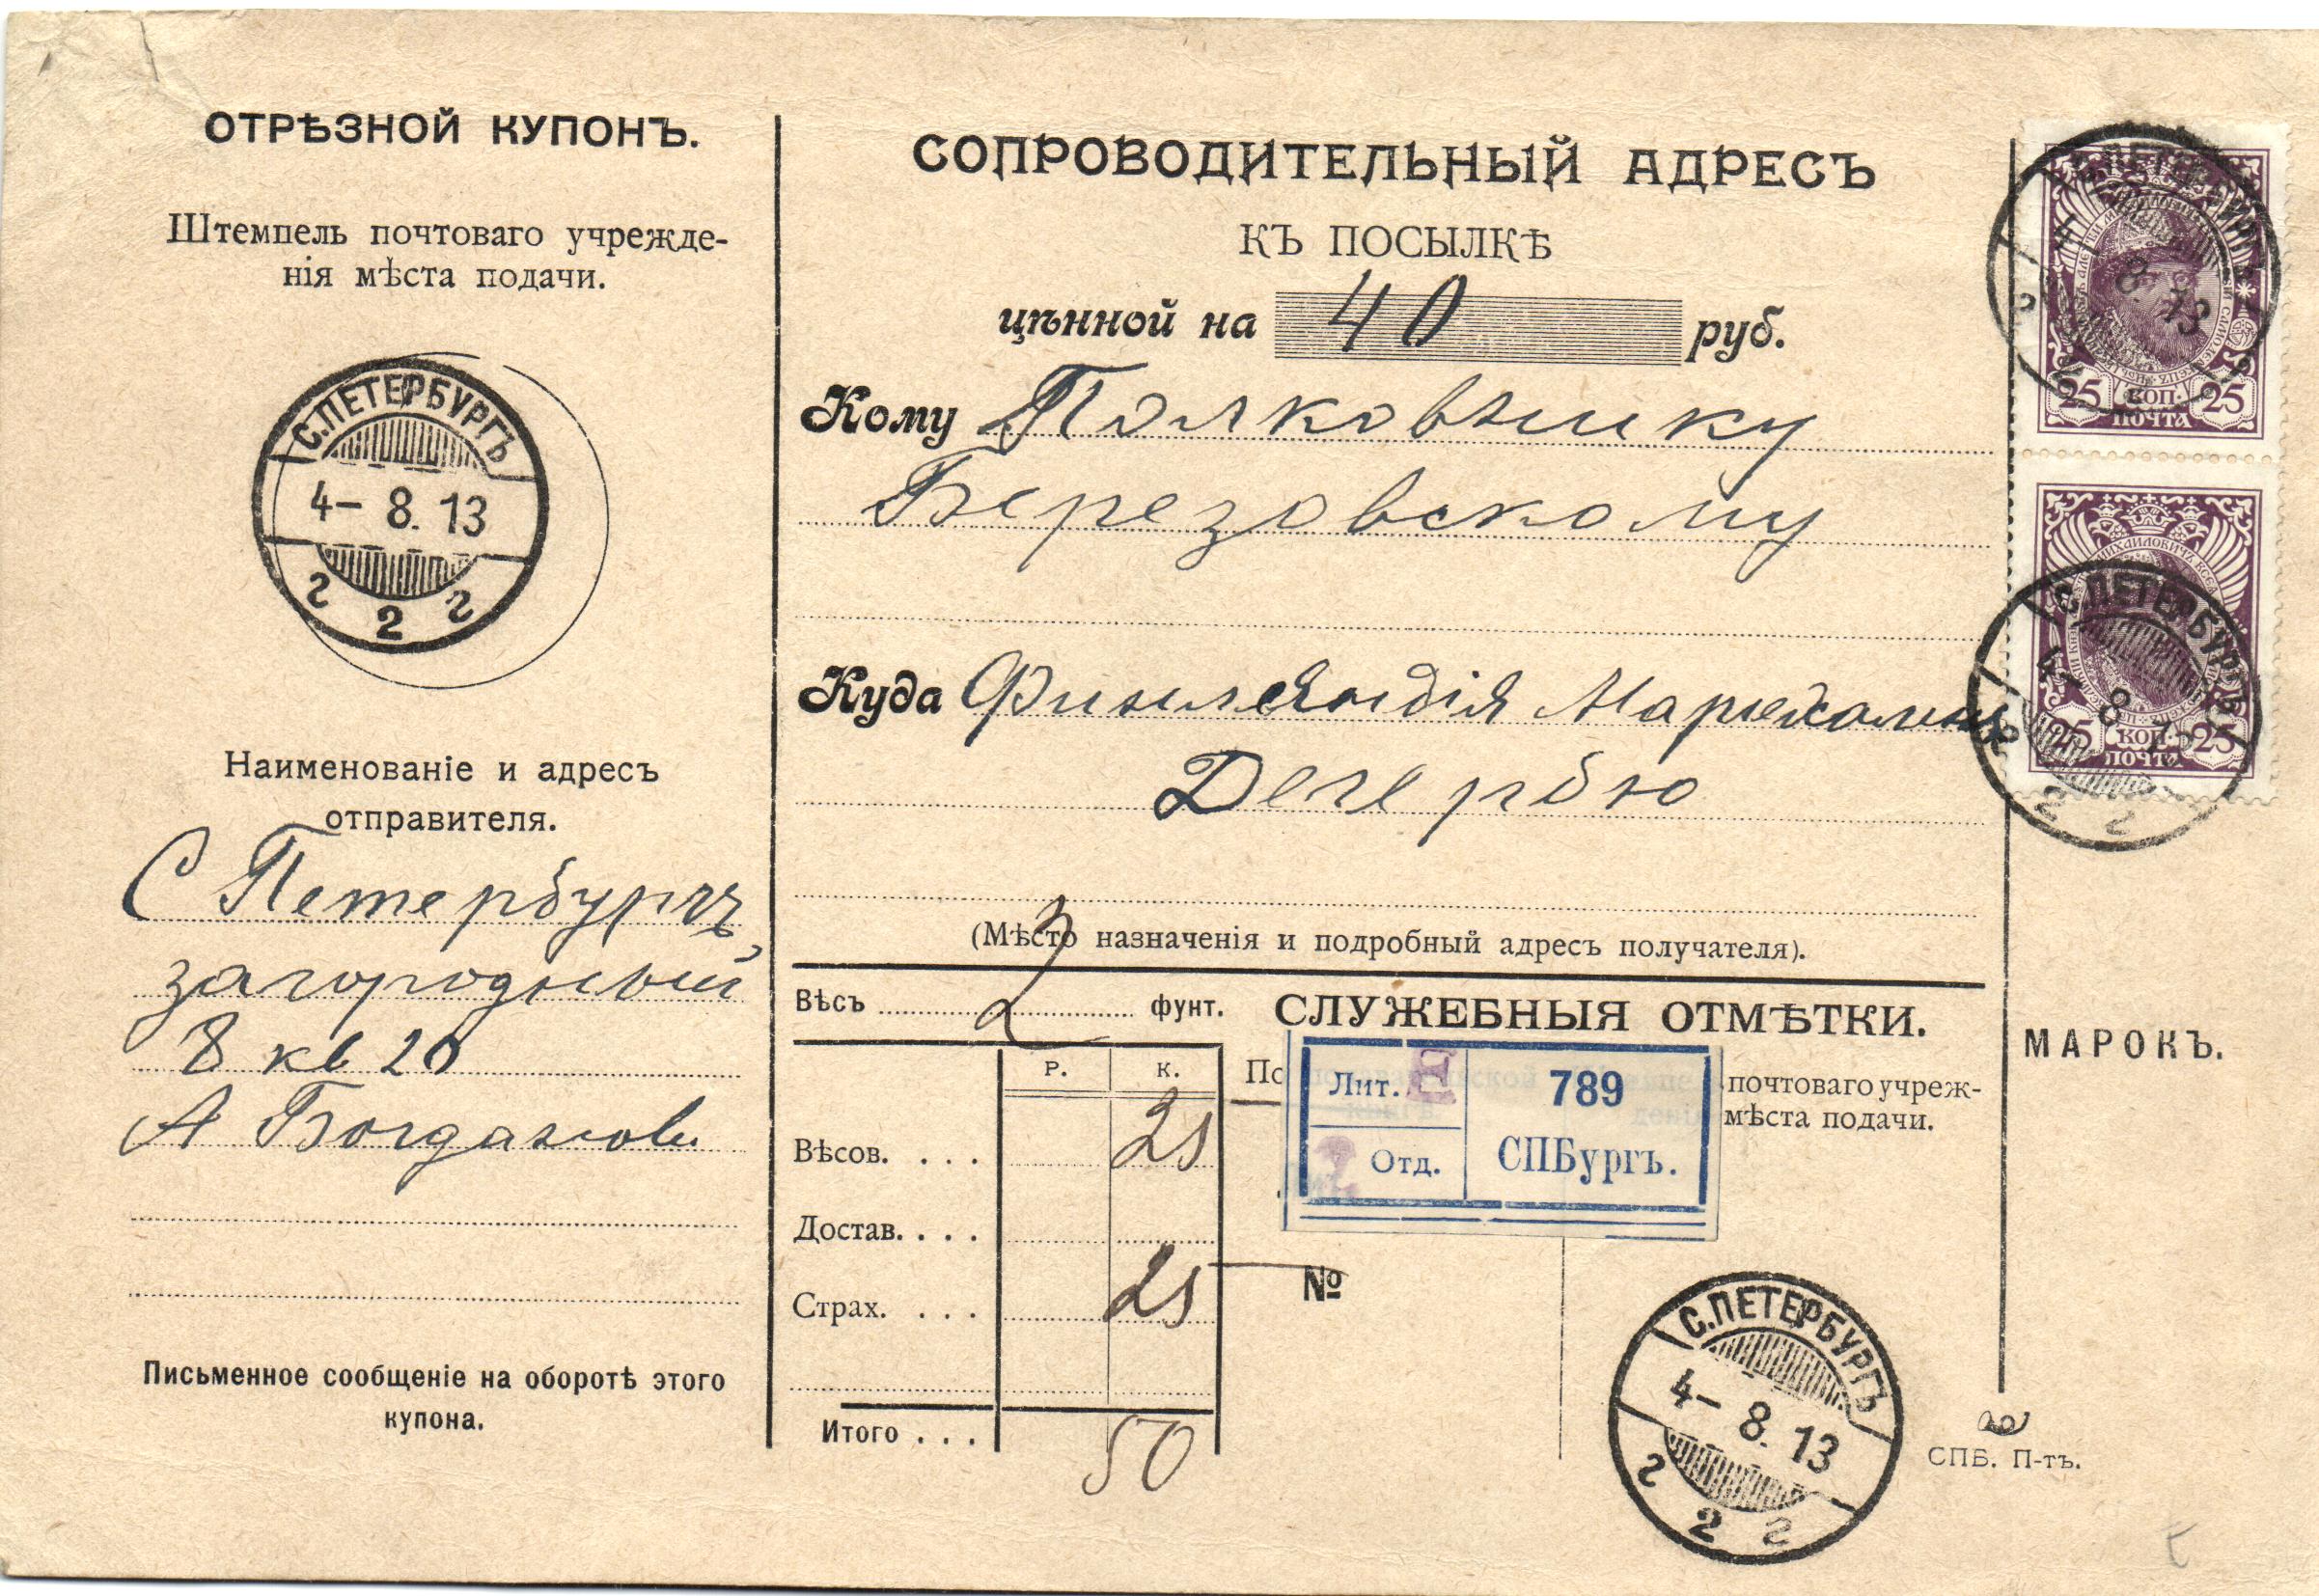 ОТРѢЗНОЙ КУПОНЪ.
Штемпель почтоваго учрежде-
нія мѣста подачи.
С.ПЕТЕРБУРГЪ
4- 8. 13
2 2 2
Наименованіе и адресъ
отправителя.
С Петербургъ,
загородный
8 кв 20
А Богданов
Письменное сообщеніе на оборотѣ этого
купона.
СОПРОВОДИТЕЛЬНЫЙ АДРЕСЪ
КЪ ПОСЫЛКѢ
цѣнной на 40 руб.
Кому Полковнику
Березовскому
Куда Финляндія Мариехамнъ
Дегербю
(Мѣсто назначенія и подробный адресъ получателя).
Вѣсъ 2 фунт.
Р. К.
Вѣсов. . . . 25
Достав. . . .
Страх. . . . 25
Итого . . . 50
СЛУЖЕБНЫЯ ОТМѢТКИ.
почтоваго учреж-
мѣста подачи.
Лит. 789
2 Отд. СПБургъ.
№
С.ПЕТЕРБУРГЪ
4- 8. 13
2 2 2
С.ПЕТЕРБУРГЪ
4- 8. 13
25 КОП. 25
ПОЧТА
С.ПЕТЕРБУРГЪ
4- 8. 13
2 2 2
25 КОП. 25
ПОЧТА
МАРОКЪ.
СПБ. П-тъ.